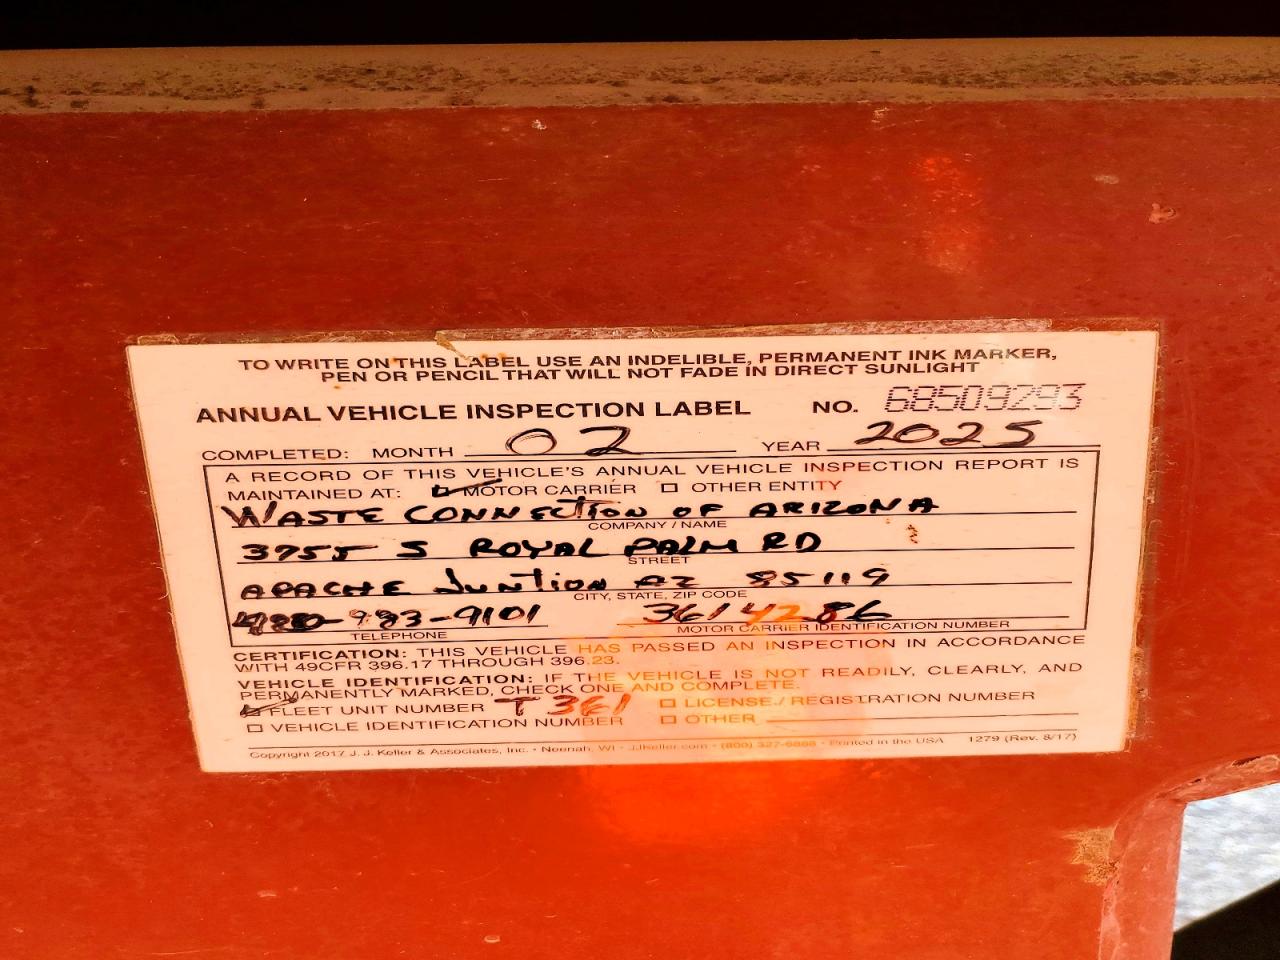 TO WRITE ON THIS LABEL USE AN INDELIBLE, PERMANENT INK MARKER,
PEN OR PENCIL THAT WILL NOT FADE IN DIRECT SUNLIGHT
ANNUAL VEHICLE INSPECTION LABEL NO. 68509293
COMPLETED: MONTH 02 YEAR 2025
A RECORD OF THIS VEHICLE'S ANNUAL VEHICLE INSPECTION REPORT IS
MAINTAINED AT: MOTOR CARRIER OTHER ENTITY
WASTE CONNECTION OF ARIZONA
COMPANY / NAME
3755 S ROYAL PALM RD
STREET
APACHE JUNTION AZ 85119
CITY, STATE, ZIP CODE
480-983-9101 3614286
TELEPHONE MOTOR CARRIER IDENTIFICATION NUMBER
CERTIFICATION: THIS VEHICLE HAS PASSED AN INSPECTION IN ACCORDANCE
WITH 49CFR 396.17 THROUGH 396.23.
VEHICLE IDENTIFICATION: IF THE VEHICLE IS NOT READILY, CLEARLY, AND
PERMANENTLY MARKED, CHECK ONE AND COMPLETE.
FLEET UNIT NUMBER T 361 LICENSE / REGISTRATION NUMBER
VEHICLE IDENTIFICATION NUMBER OTHER
Copyright 2017 J. J. Keller & Associates, Inc. • Neenah, WI • JJKeller.com • (800) 327-6868 • Printed in the USA 1279 (Rev. 8/17)